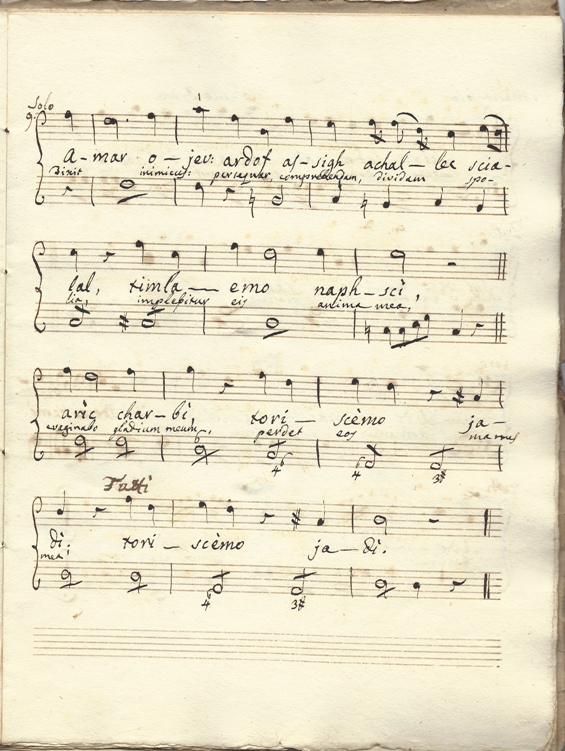 Solo
A-mar o-jev: ardof as-sigh achal-lec scia-
Dixit inimicus: persequar comprehendam, dividam spo-
lal, timla-emo naph-scì,
lia, implebitur eis anima mea,
arìc char-bì, tori-scèmo ja-
evaginabo gladium meum, perdet eos manus
6 4 6 4 6 3#
Tutti
dì: tori-scèmo ja-dì.
mea;
4 3#